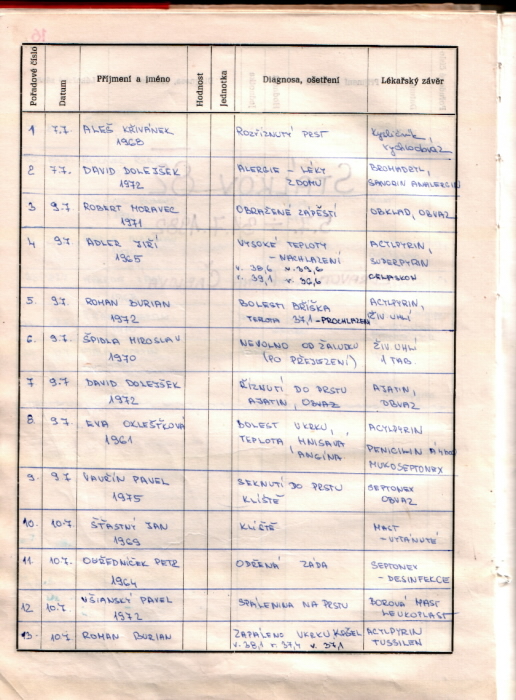 Pořadové číslo Datum Příjmení a jméno Hodnost Jednotka Diagnosa, ošetření Lékařský závěr
1 7.7. ALEŠ KŘIVÁNEK ROZŘÍZNUTÝ PRST
1968 rychloobvaz
2 7.7. DAVID DOLEJŠEK ALERGIE – LÉKY BROMADRYL,
1972 Z DOMU SANORIN ANALERGIN
3 9.7 ROBERT MORAVEC OBRAŽENÉ ZÁPĚSTÍ OBKLAD, OBVAZ
1971
4 9.7 ADLER JIŘÍ VYSOKÉ TEPLOTY ACYLPYRIN,
1965 – NACHLAZENÍ SUPERPYRIN
v. 38,6 v. 39,6 CELASKON
r. 39,1 v. 36,6
5. 9.7. ROMAN BURIAN BOLESTI BŘÍŠKA ACYLPYRIN,
1972 TEPLOTA 37,1 – PROCHLAZENÍ ŽIV. UHLÍ
6. 9.7. ŠPIDLA MIROSLAV NEVOLNO OD ŽALUDKU ŽIV. UHLÍ
1970 (PO PŘEJEZENÍ) 1 TAB.
7 9.7 DAVID DOLEJŠEK ŘÍZNUTÍ DO PRSTU AJATIN,
1972 AJATIN, OBVAZ OBVAZ
8. 9.7. EVA OKLEŠŤKOVÁ BOLEST V KRKU, ACYLPYRIN
1961 TEPLOTA HNISAVÁ PENICILIN
ANGÍNA MUKOSEPTONEX
9. 9.7. VAVŘÍN PAVEL SEKNUTÍ DO PRSTU SEPTONEX
1975 KLÍŠTĚ OBVAZ
10. 10.7. ŠŤASTNÝ JAN KLÍŠTĚ MAST
1969 – VYTÁNUTÉ
11. 10.7. ONDŘEDNÍČEK PETR ODŘENÁ ZÁDA SEPTONEX
1964 – DESINFEKCE
12. 10.7. VŠIANSKÝ PAVEL SPÁLENINA NA PRSTU BOROVÁ MAST
1972 LEUKOPLAST
13. 10.7. ROMAN BURIAN ZAPÁLENO V KRKU, KAŠEL ACYLPYRIN
v. 38,1 r. 37,4 v. 37,1 TUSSILEN